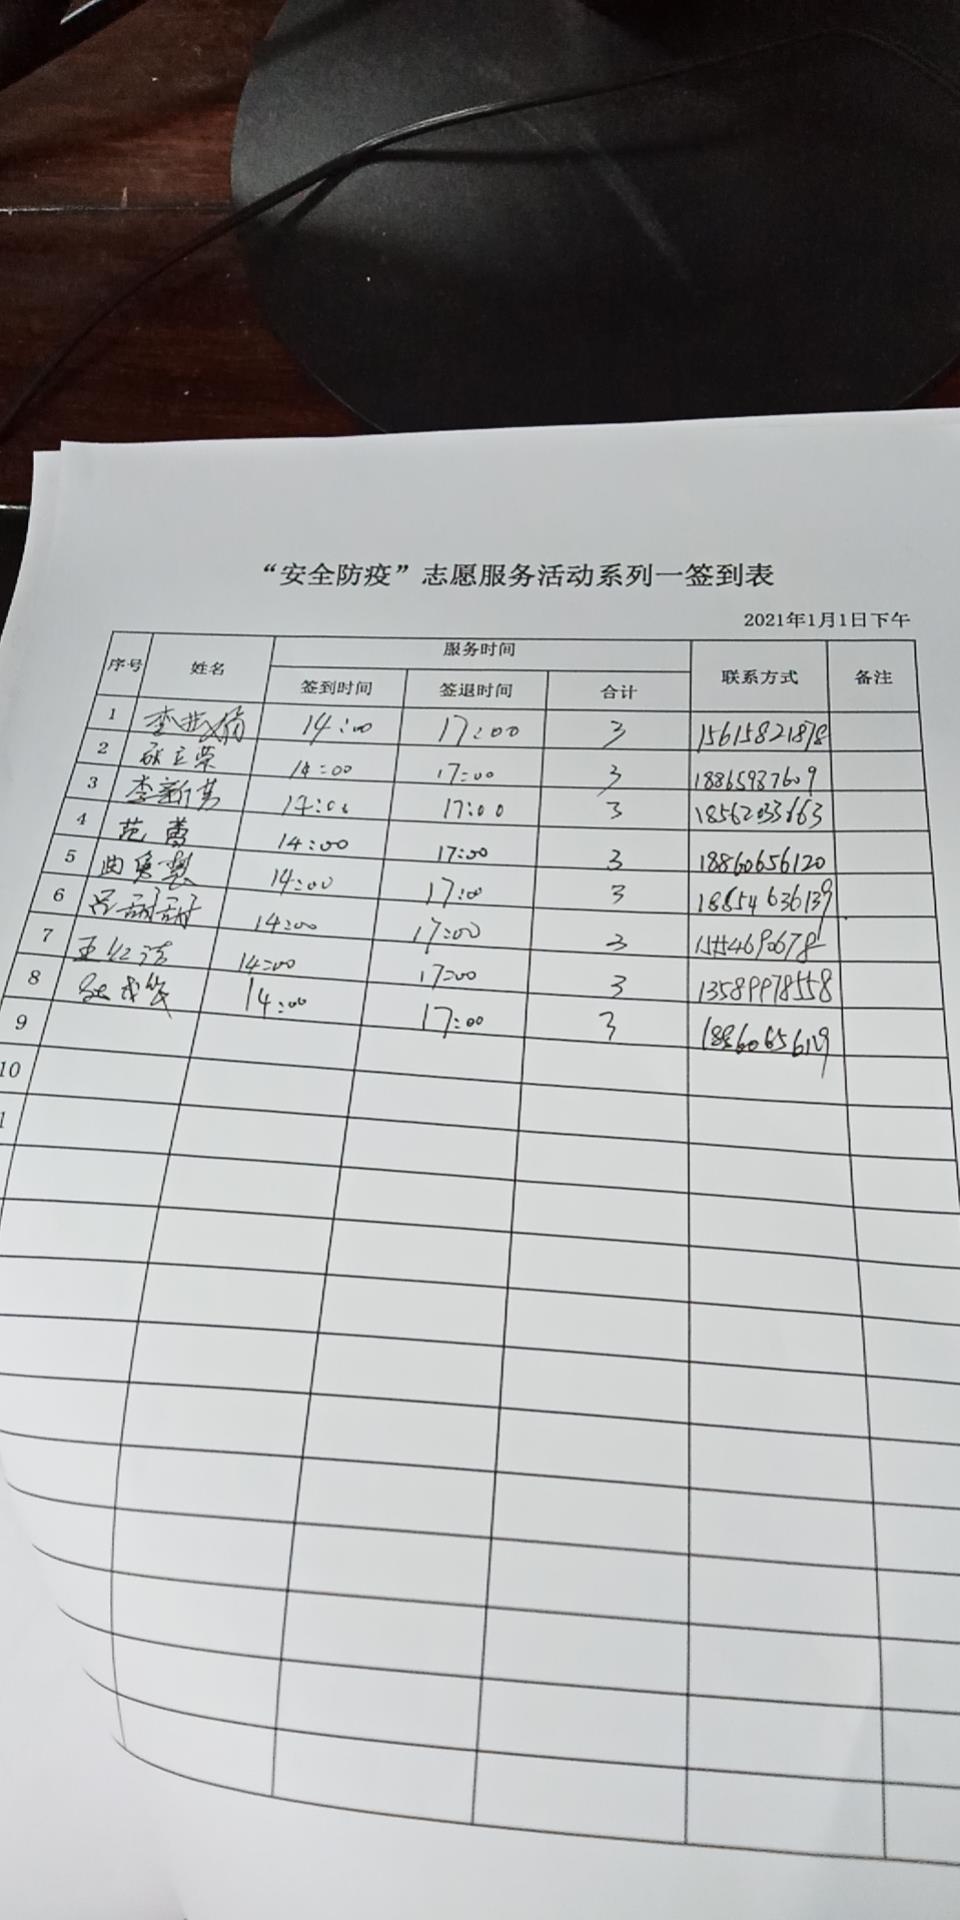 “安全防疫”志愿服务活动系列一签到表
2021年1月1日下午
序号 姓名 服务时间 联系方式 备注
签到时间 签退时间 合计
1 14:00 17:00 3 15615821878
2 14:00 17:00 3 18865937609
3 李新芳 14:00 17:00 3 18562033663
4 范蕾 14:00 17:00 3 18860656120
5 14:00 17:00 3 18854636139
6 吕甜甜 14:00 17:00 3
7 14:00 17:00 3 13589978558
8 14:00 17:00 3
9
10